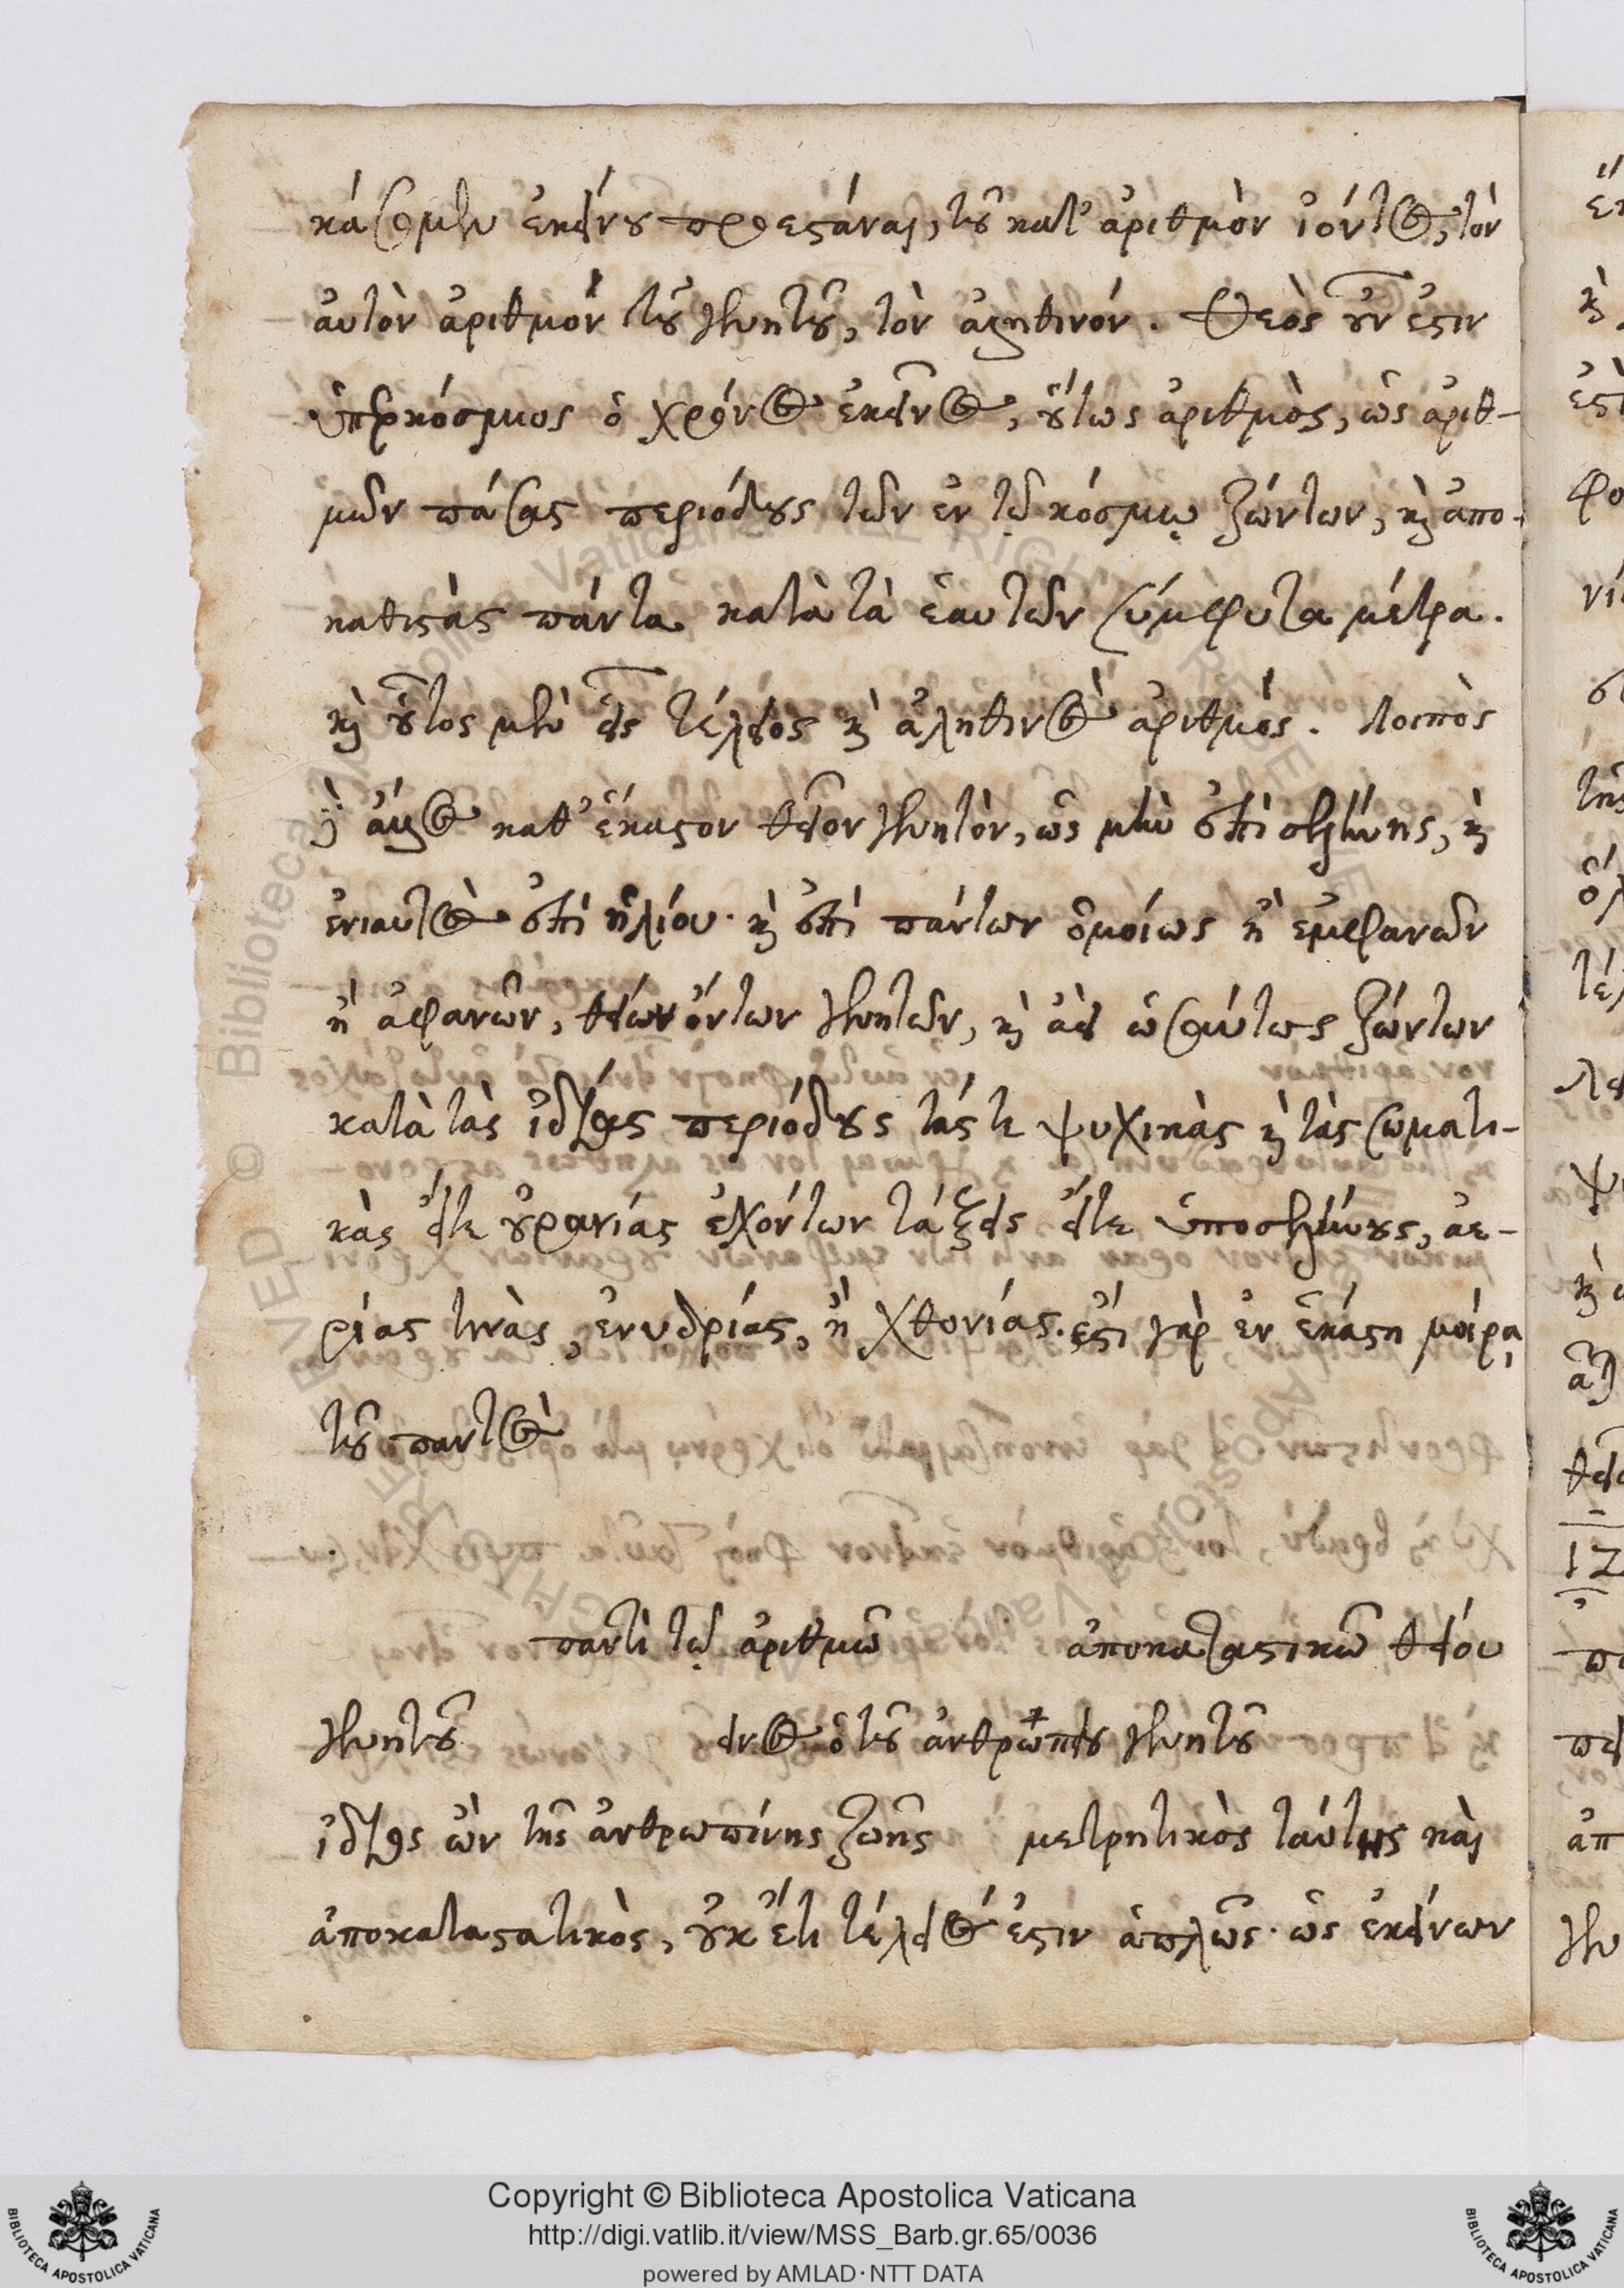 κάσομεν ἐκείνου προεστάναι, τοῦ κατ' ἀριθμὸν ἰόντος, τὸν
αὐτὸν ἀριθμὸν τοῦ γεννητοῦ, τὸν ἀληθινόν. Θεὸς οὖν ἐστιν
ὑπερκόσμιος ὁ χρόνος ἐκεῖνος, οὕτως ἀριθμὸς, ὡς ἀριθ-
μῶν πάσας περιόδους τῶν ἐν τῷ κόσμῳ ζώντων, καὶ ἀπο-
καθιστὰς πάντα κατὰ τὰ ἑαυτῶν σύμφυτα μέτρα.
καὶ οὗτος μὲν εἷς τέλειος καὶ ἀληθινὸς ἀριθμός. λοιπὸς
καθ' ἕκαστον θεῖον γεννητὸν, ὡς μὲν ἐπὶ σελήνης, καὶ
ἐνιαυτὸς ἐπὶ ἡλίου· καὶ ἐπὶ πάντων ὁμοίως ἢ ἐμφανῶν
ἢ ἀφανῶν, θείων ὄντων γεννητῶν, καὶ ἀεὶ ὡσαύτως ζώντων
κατὰ τὰς ἰδίας περιόδους τάς τε ψυχικὰς καὶ τὰς σωματι-
κὰς εἴτε οὐρανίας ἐχόντων τάξεις εἴτε ὑποσελήνους, ἀε-
ρίας τινὰς, ἐνυδρίας, ἢ χθονίας. ἔστι γὰρ ἐν ἑκάστῃ μοίρᾳ
τοῦ παντὸς
παντὶ τῷ ἀριθμῷ ἀποκαταστικῷ θείου
γεννητοῦ εινος ὁ τοῦ ἀνθρωπείου γεννητοῦ
ἴδιος ὢν τῆς ἀνθρωπίνης ζωῆς μετρητικὸς ταύτης καὶ
ἀποκαταστατικὸς, οὐκ ἔτι τέλειός ἐστιν ἁπλῶς· ὡς ἐκείνων
Copyright © Biblioteca Apostolica Vaticana
http://digi.vatlib.it/view/MSS_Barb.gr.65/0036
powered by AMLAD·NTT DATA